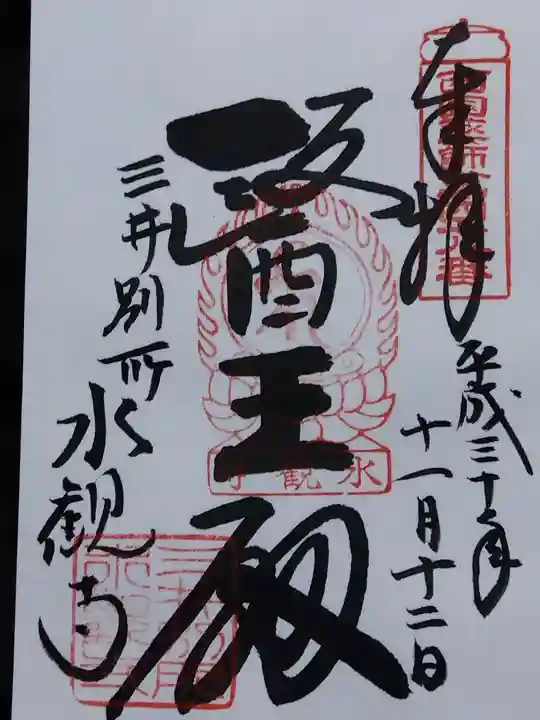 奉拝
平成三十年
十一月十二日
醫王殿
三井別所
水観寺
水観寺